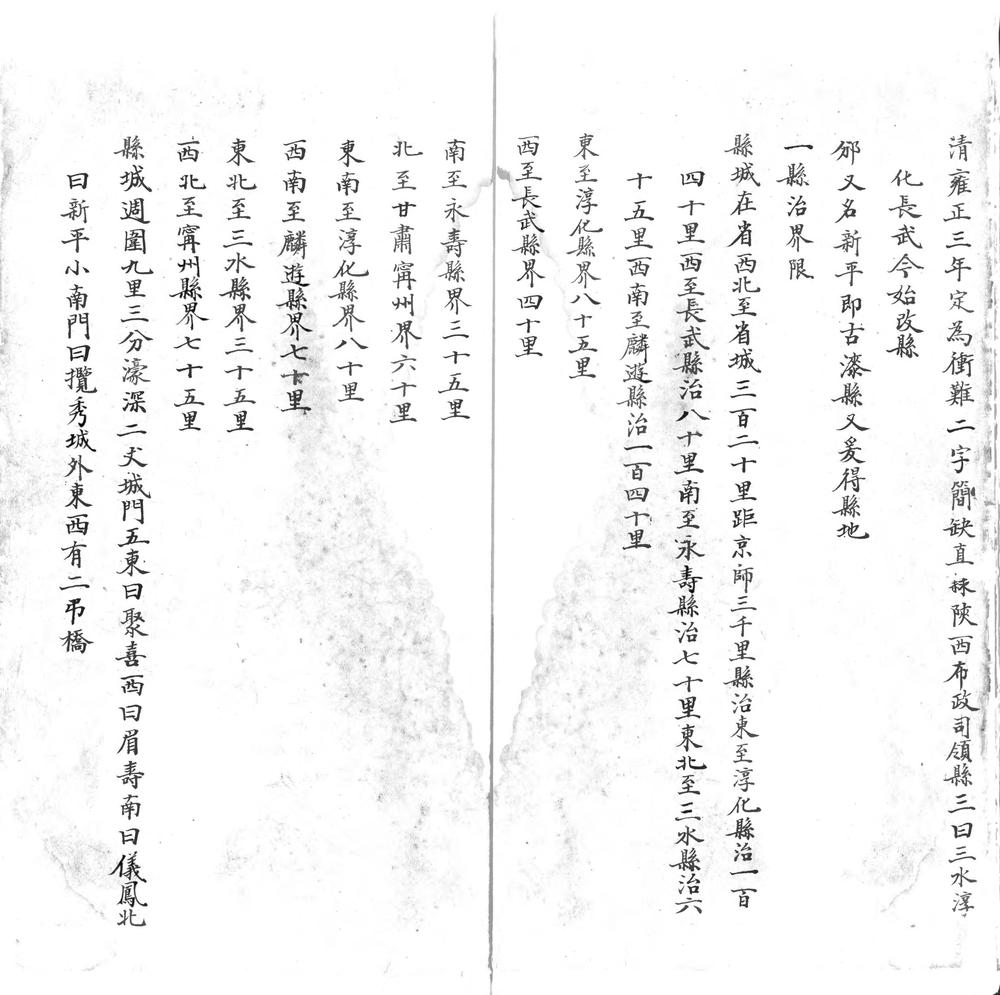 清雍正三年定為衝難二字簡缺直棣陝西布政司領縣三曰三水淳
化長武今始改縣
邠又名新平即古漆縣又爰得縣地
一縣治界限
縣城在省西北至省城三百二十里距京師三千里縣治東至淳化縣治一百
四十里西至長武縣治八十里南至永壽縣治七十里東北至三水縣治六
十五里西南至麟遊縣治一百四十里
東至淳化縣界八十五里
西至長武縣界四十里
南至永壽縣界三十五里
北至甘肅甯州界六十里
東南至淳化縣界八十里
西南至麟遊縣界七十里
東北至三水縣界三十五里
西北至甯州縣界七十五里
縣城週圍九里三分濠深二丈城門五東曰聚喜西曰眉壽南曰儀鳳北
曰新平小南門曰攬秀城外東西有二弔橋